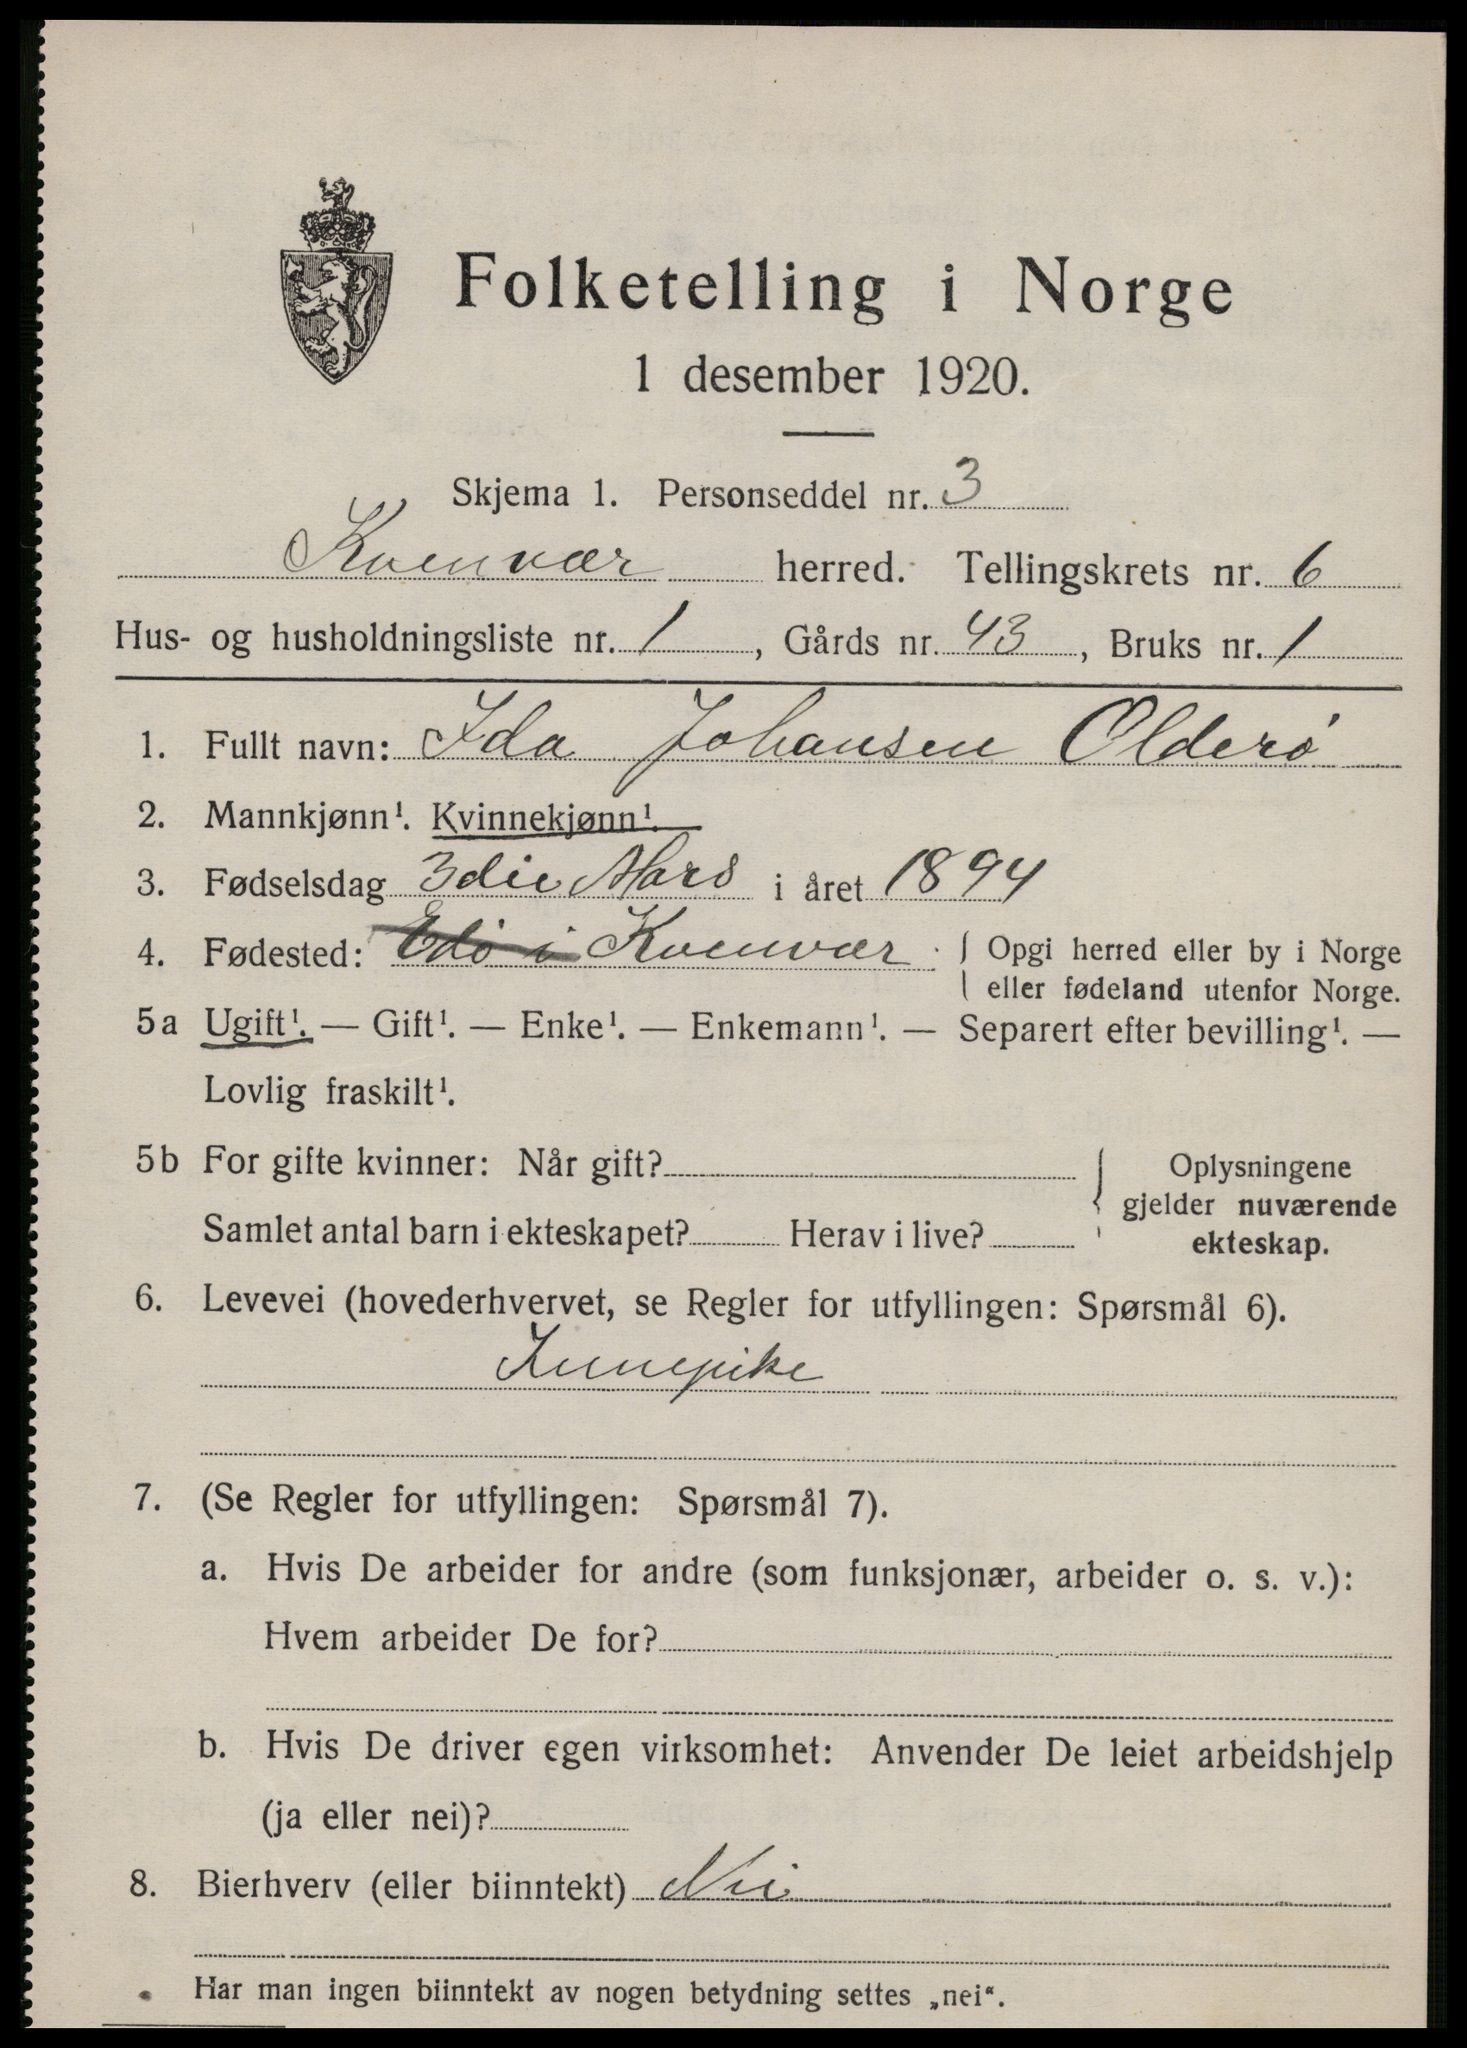 Folketelling i Norge
1 desember 1920.
Skjema 1. Personseddel nr. 3
Kvenvær herred. Tellingskrets nr. 6
Hus- og husholdningsliste nr. 1, Gårds nr. 43, Bruks nr. 1
1. Fullt navn: Ida Johansen Olderø
2. Mannkjønn¹. Kvinnekjønn¹.
3. Fødselsdag 3die Mars i året 1894
4. Fødested: Edø i Kvenvær { Opgi herred eller by i Norge
eller fødeland utenfor Norge.
5a Ugift¹. — Gift¹. — Enke¹. — Enkemann¹. — Separert efter bevilling¹. —
Lovlig fraskilt¹.
5b For gifte kvinner: Når gift?
Samlet antal barn i ekteskapet? Herav i live?
Oplysningene
gjelder nuværende
ekteskap.
6. Levevei (hovederhvervet, se Regler for utfyllingen: Spørsmål 6).
Innepike
7. (Se Regler for utfyllingen: Spørsmål 7).
a. Hvis De arbeider for andre (som funksjonær, arbeider o. s. v.):
Hvem arbeider De for?
b. Hvis De driver egen virksomhet: Anvender De leiet arbeidshjelp
(ja eller nei)?
8. Bierhverv (eller biinntekt) Nei
Har man ingen biinntekt av nogen betydning settes „nei“.